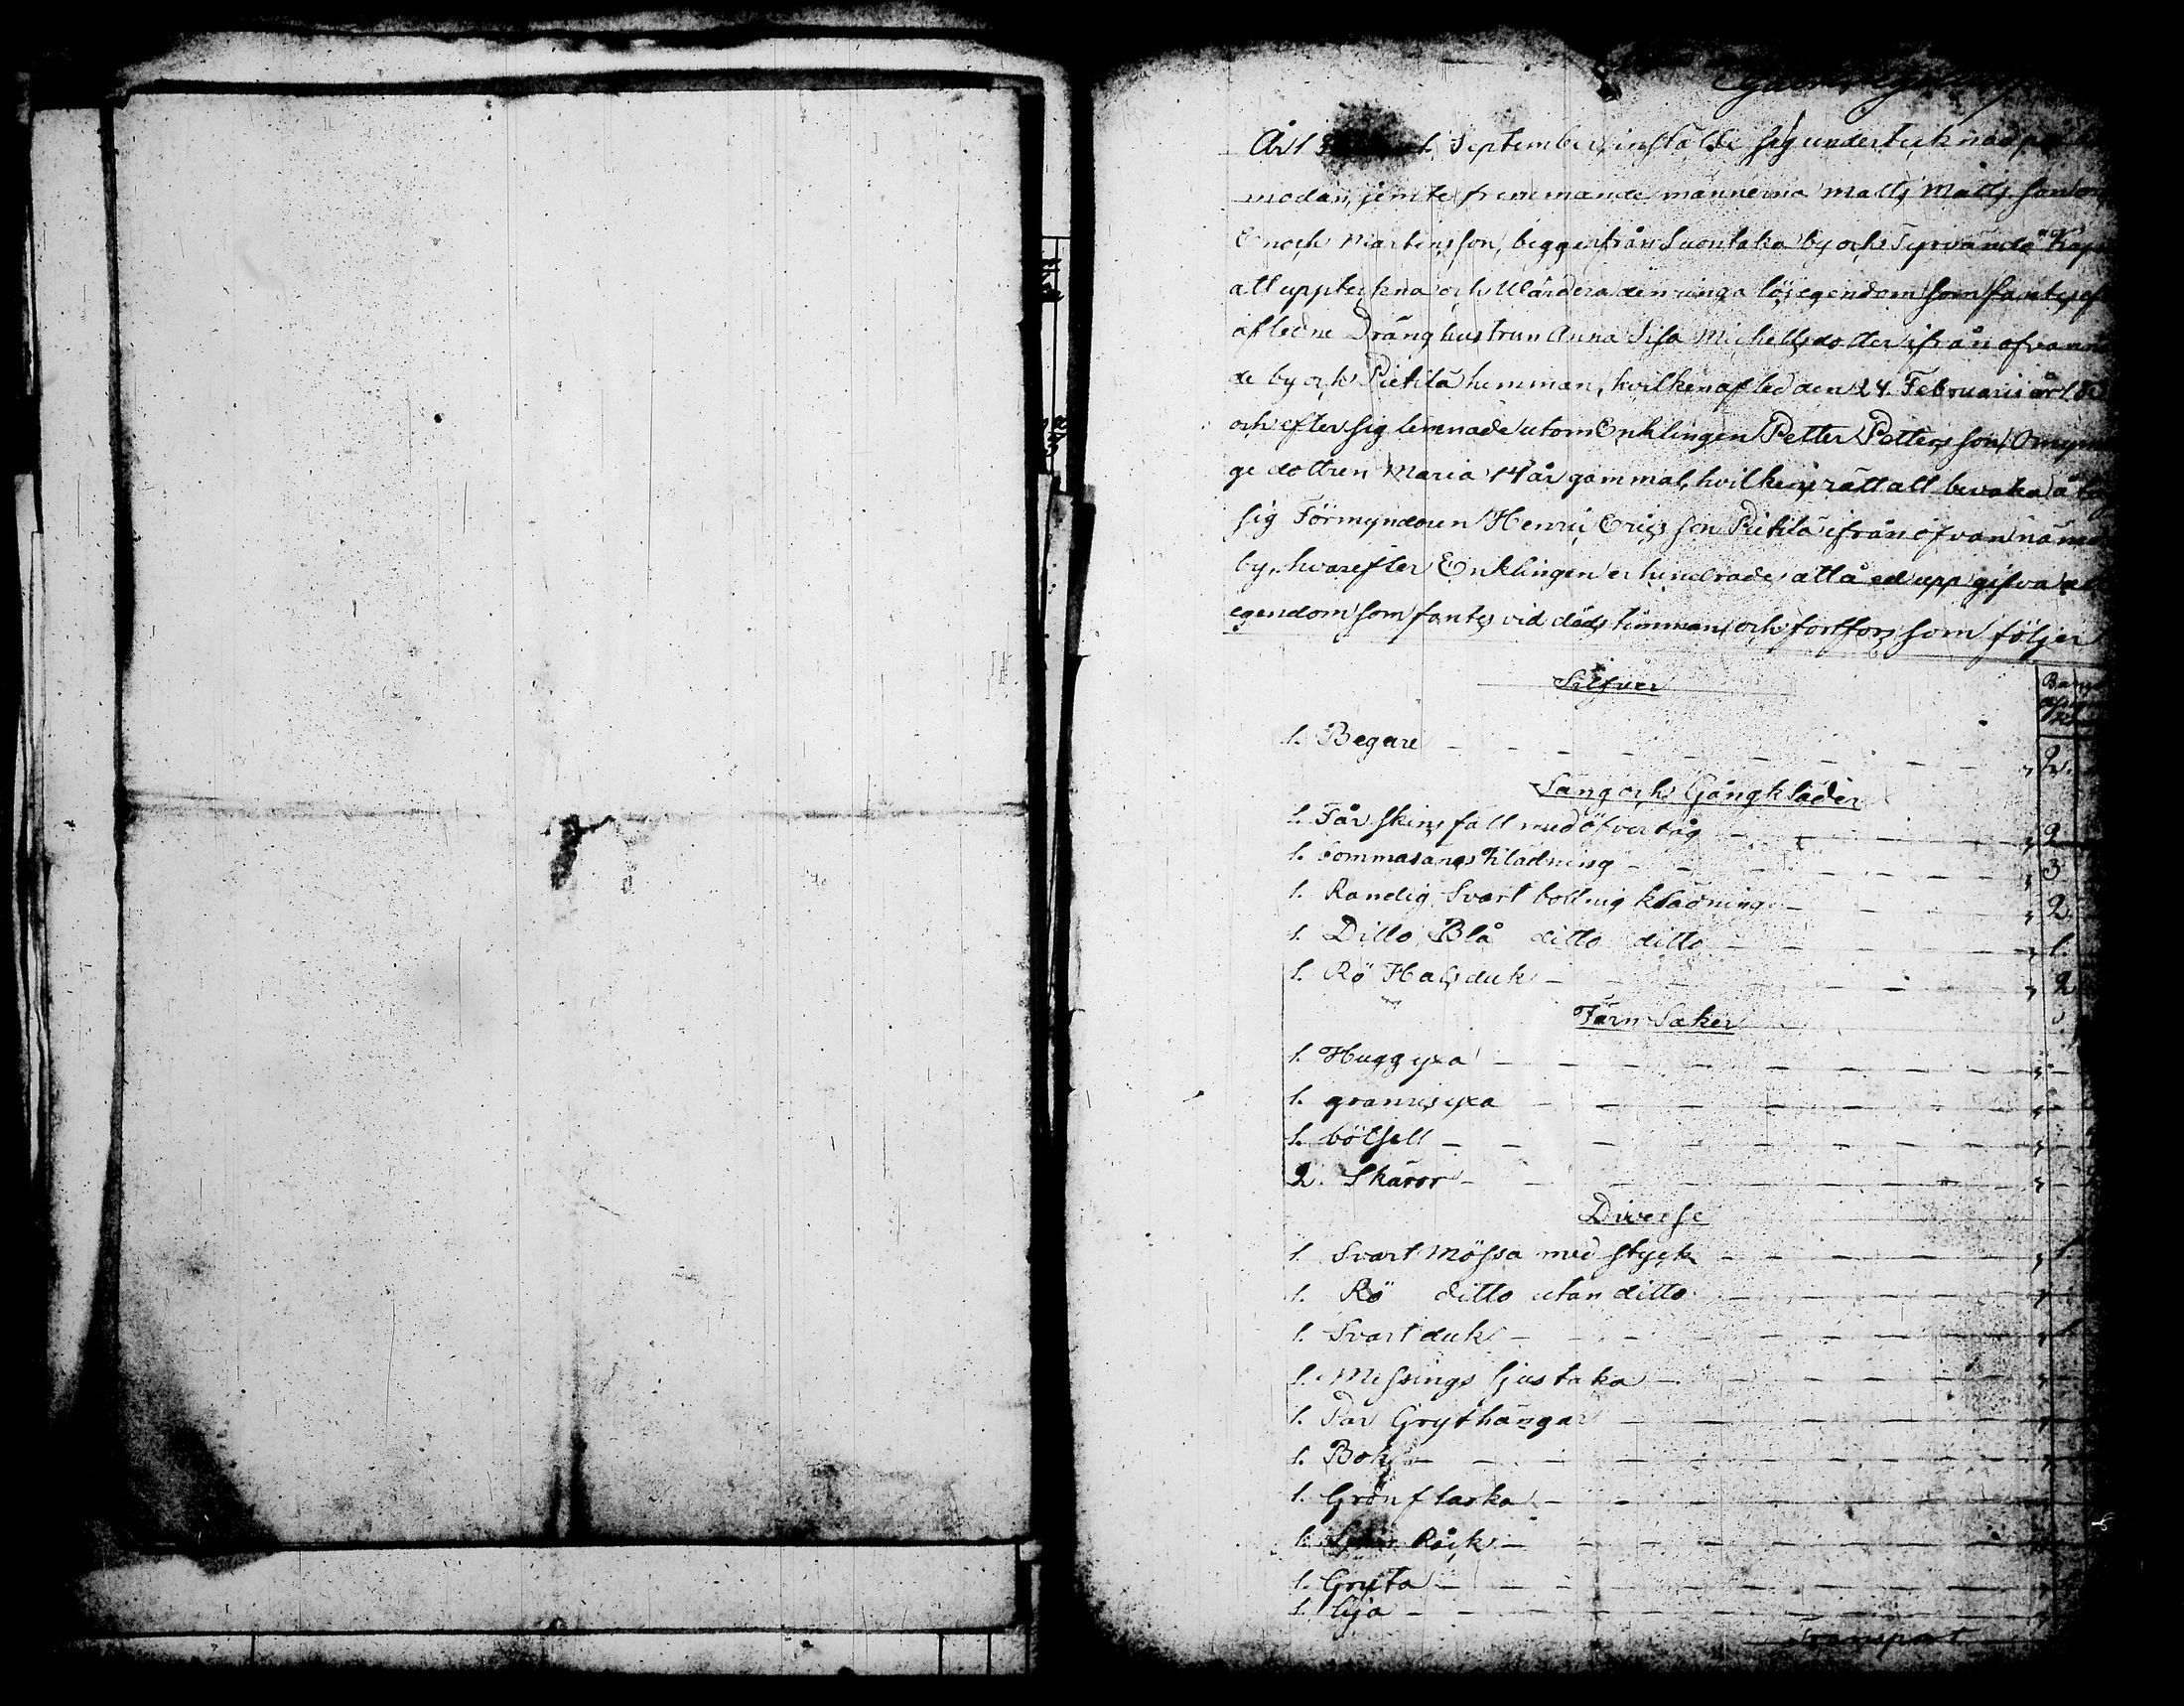 September, instälde sig undertecknad på
modan, jemte fremmande männerna Matts Matts son
Enoch Mårtensson, begge från Suontaka by och Tyrvändö Kap
att uppteckna och Värdera den ringa lösegendom som fants ef
afledne Dränghustrun Anna Lisa Michelsdotter ifrån ofvann
de by och Pietilä hemman, hvilken afled den 24. Februarii
och efter sig lemnade utom Enklingen Petter Petters son, Omyn
ge dottren Maria 14 år gammal, hvilkens rätt att bevaka å tog
sig Förmyndaren Henric Erics son Pietilä ifrån ofvan nämn
by, hvarefter Enklingen erhindrade att å ed uppgifva all
egendom som fants vid döds timman och fortfors som följer
Silfver
1. Begare 2.
Säng och Gångkläder
1. Får skins fäll med öfvertåg 2
1. Sommasångs Klädning 3
1. Randig Svart bottnig klädning 2
1. Ditto Blå ditto ditto 1.
1. Rö Halsduk 2
Järn Saker
1. Huggyxa
1. granrisyxa
1. bötsell
2. Skäror
Diverse
1. Svart Mössa med styck 1.
1. Rö ditto utan ditto
1. Svart duk 1.
1. Messings ljustaka
1. Par Grythängar
1. Bok
1. Grön flaska
1. Råck
1. Gryta
1. lija
Transport